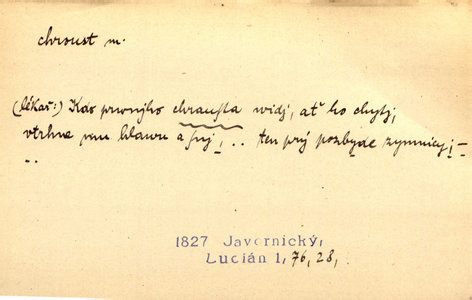 chroust m.
(lékař:) Kdo prwnjho chrausta widj, ať ho chytj,
vtrhne mu hlawu a snj, .. ten prý pozbyde zymnicy; –
..
1827 Javornický,
Lucián 1, 76, 28,